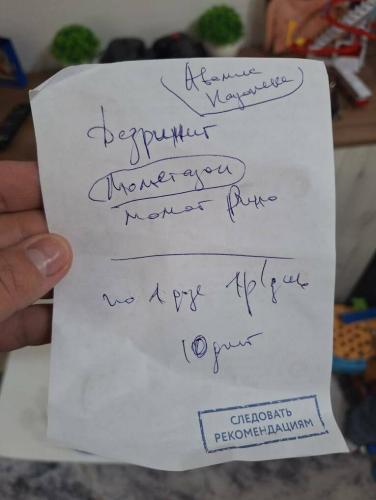 Авамис
Назонекс
Дезринит
Мометазон
момат Рино
по 1 дозе 1р/день
10 дней
СЛЕДОВАТЬ
РЕКОМЕНДАЦИЯМ